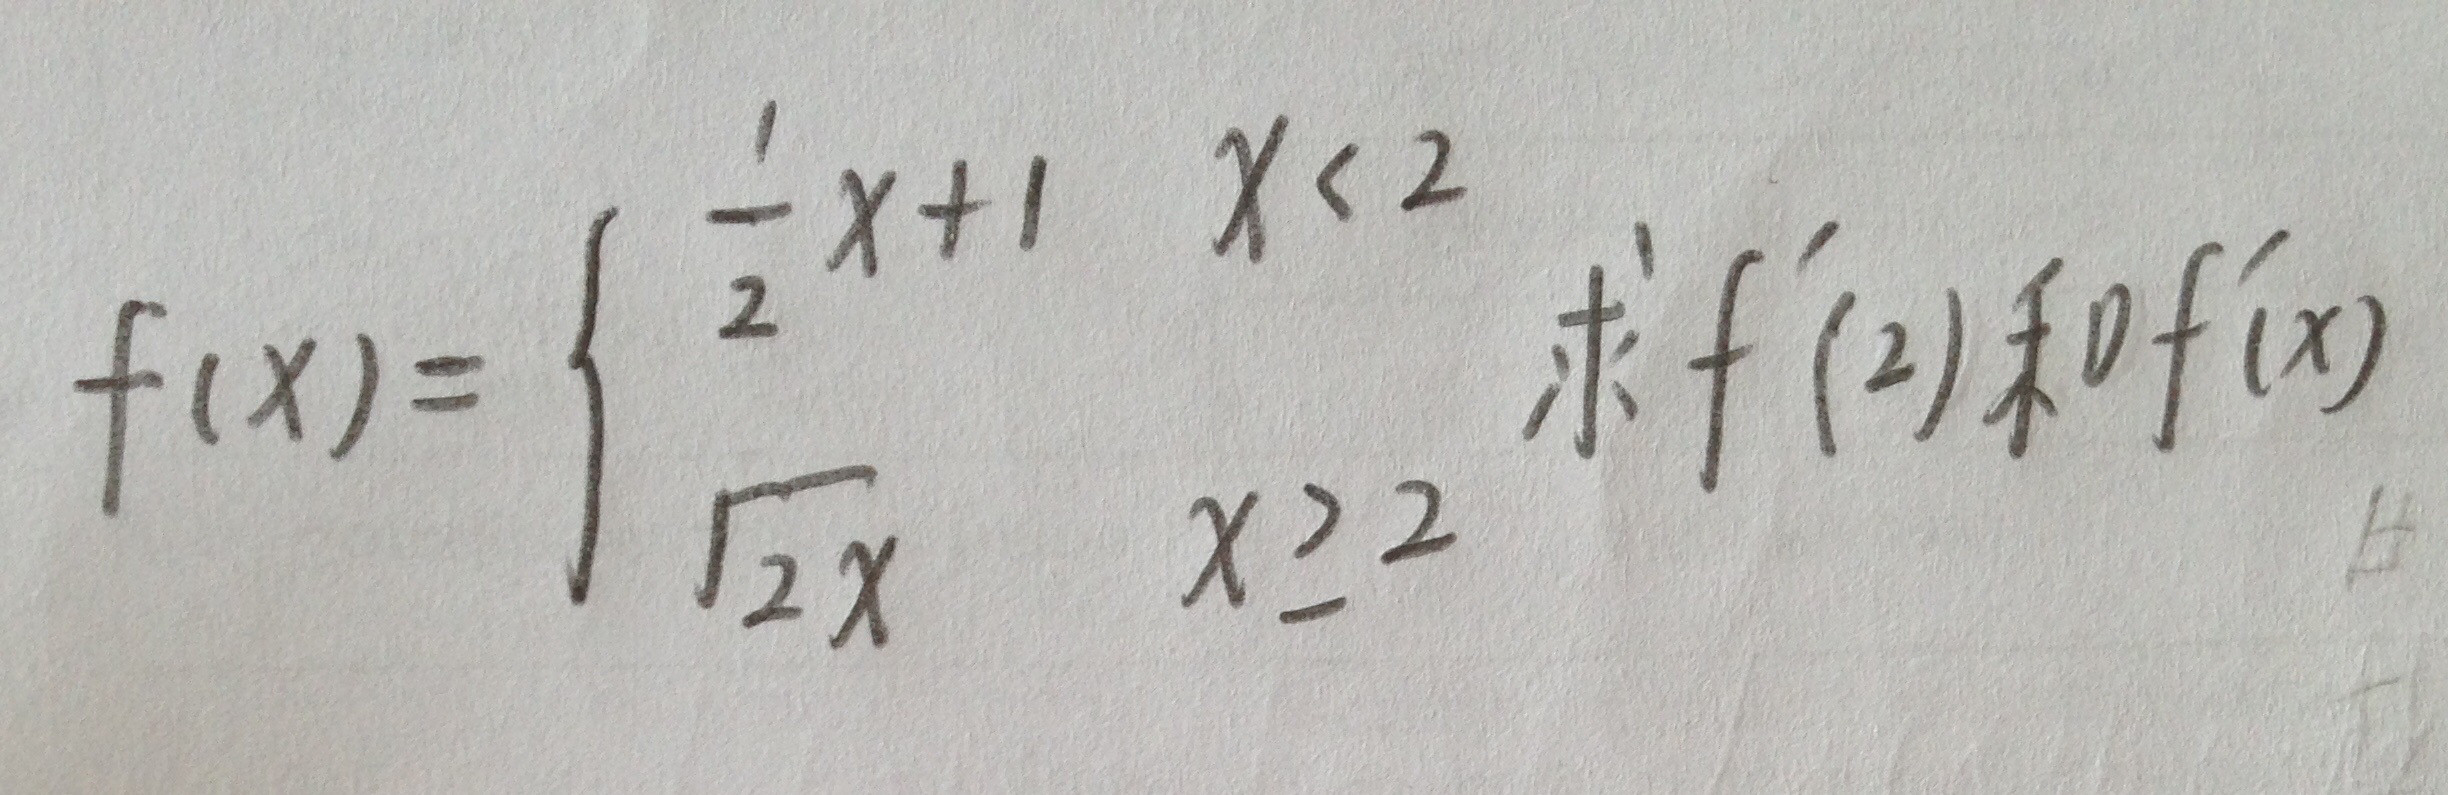 f(x) = { 1/2 x + 1  x < 2
√2x  x ≥ 2
求 f′(2) 和 f′(x)